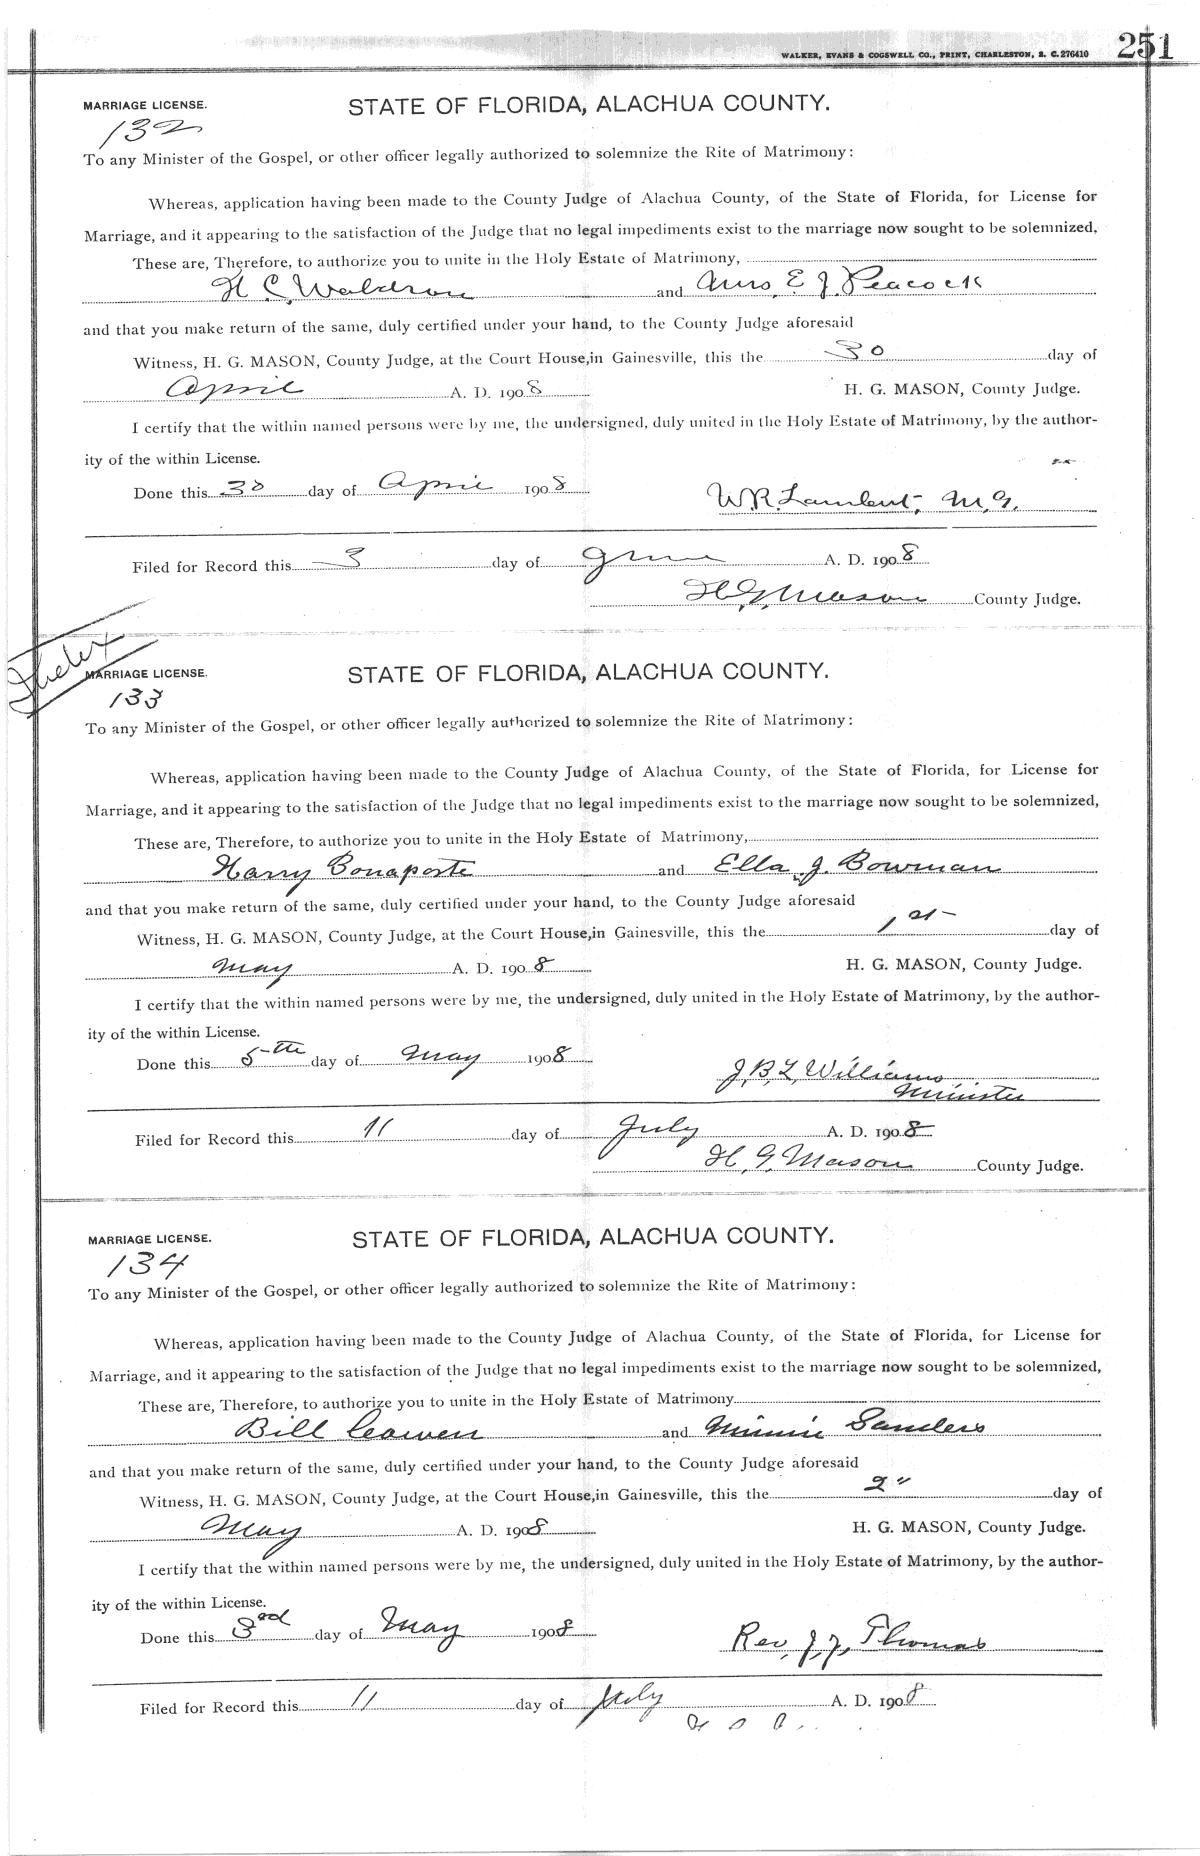 251
WALKER, EVANS & COGSWELL CO., PRINT, CHARLESTON, S. C. 276410
MARRIAGE LICENSE. STATE OF FLORIDA, ALACHUA COUNTY.
132
To any Minister of the Gospel, or other officer legally authorized to solemnize the Rite of Matrimony:
Whereas, application having been made to the County Judge of Alachua County, of the State of Florida, for License for
Marriage, and it appearing to the satisfaction of the Judge that no legal impediments exist to the marriage now sought to be solemnized,
These are, Therefore, to authorize you to unite in the Holy Estate of Matrimony,
H. C. Waldron and Mrs. E. J. Peacock
and that you make return of the same, duly certified under your hand, to the County Judge aforesaid
Witness, H. G. MASON, County Judge, at the Court House, in Gainesville, this the 30 day of
April A. D. 1908 H. G. MASON, County Judge.
I certify that the within named persons were by me, the undersigned, duly united in the Holy Estate of Matrimony, by the author-
ity of the within License.
Done this 30 day of April 1908
W. R. Lambert, M. G.
Filed for Record this 3 day of June A. D. 1908
H. G. Mason County Judge.
MARRIAGE LICENSE. STATE OF FLORIDA, ALACHUA COUNTY.
133
To any Minister of the Gospel, or other officer legally authorized to solemnize the Rite of Matrimony:
Whereas, application having been made to the County Judge of Alachua County, of the State of Florida, for License for
Marriage, and it appearing to the satisfaction of the Judge that no legal impediments exist to the marriage now sought to be solemnized,
These are, Therefore, to authorize you to unite in the Holy Estate of Matrimony,
Harry Bonaparte and Ella J. Bowman
and that you make return of the same, duly certified under your hand, to the County Judge aforesaid
Witness, H. G. MASON, County Judge, at the Court House, in Gainesville, this the 1st day of
May A. D. 1908 H. G. MASON, County Judge.
I certify that the within named persons were by me, the undersigned, duly united in the Holy Estate of Matrimony, by the author-
ity of the within License.
Done this 5th day of May 1908
J. B. L. Williams
Minister
Filed for Record this 11 day of July A. D. 1908
H. G. Mason County Judge.
MARRIAGE LICENSE. STATE OF FLORIDA, ALACHUA COUNTY.
134
To any Minister of the Gospel, or other officer legally authorized to solemnize the Rite of Matrimony:
Whereas, application having been made to the County Judge of Alachua County, of the State of Florida, for License for
Marriage, and it appearing to the satisfaction of the Judge that no legal impediments exist to the marriage now sought to be solemnized,
These are, Therefore, to authorize you to unite in the Holy Estate of Matrimony
Bill Cowen and Minnie Sanders
and that you make return of the same, duly certified under your hand, to the County Judge aforesaid
Witness, H. G. MASON, County Judge, at the Court House, in Gainesville, this the 2" day of
May A. D. 1908 H. G. MASON, County Judge.
I certify that the within named persons were by me, the undersigned, duly united in the Holy Estate of Matrimony, by the author-
ity of the within License.
Done this 3rd day of May 1908
Rev. J. J. Thomas
Filed for Record this 11 day of July A. D. 1908